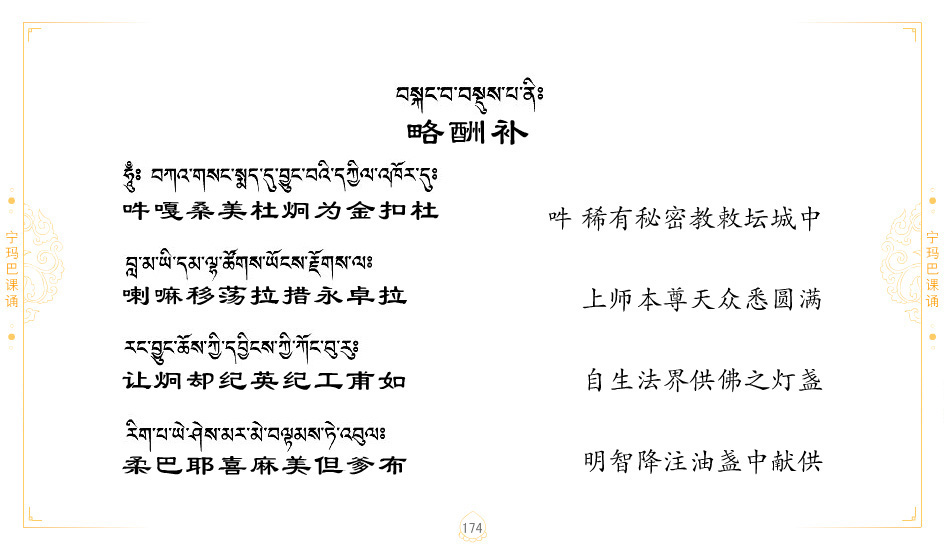 བསྐང་བ་བསྡུས་པ་ནི༔
略酬补
ཧཱུྃ༔ བཀའ་གསང་སྨད་དུ་བྱུང་བའི་དཀྱིལ་འཁོར་དུ༔
吽嘎桑美杜炯为金扣杜
吽 稀有秘密教敕坛城中
བླ་མ་ཡི་དམ་ལྷ་ཚོགས་ཡོངས་རྫོགས་ལ༔
喇嘛移荡拉措永卓拉
上师本尊天众悉圆满
རང་བྱུང་ཆོས་ཀྱི་དབྱིངས་ཀྱི་ཀོང་བུ་རུ༔
让炯却纪英纪工甫如
自生法界供佛之灯盏
རིག་པ་ཡེ་ཤེས་མར་མེ་བལྟམས་ཏེ་འབུལ༔
柔巴耶喜麻美但爹布
明智降注油盏中献供
宁玛巴课诵
宁玛巴课诵
174